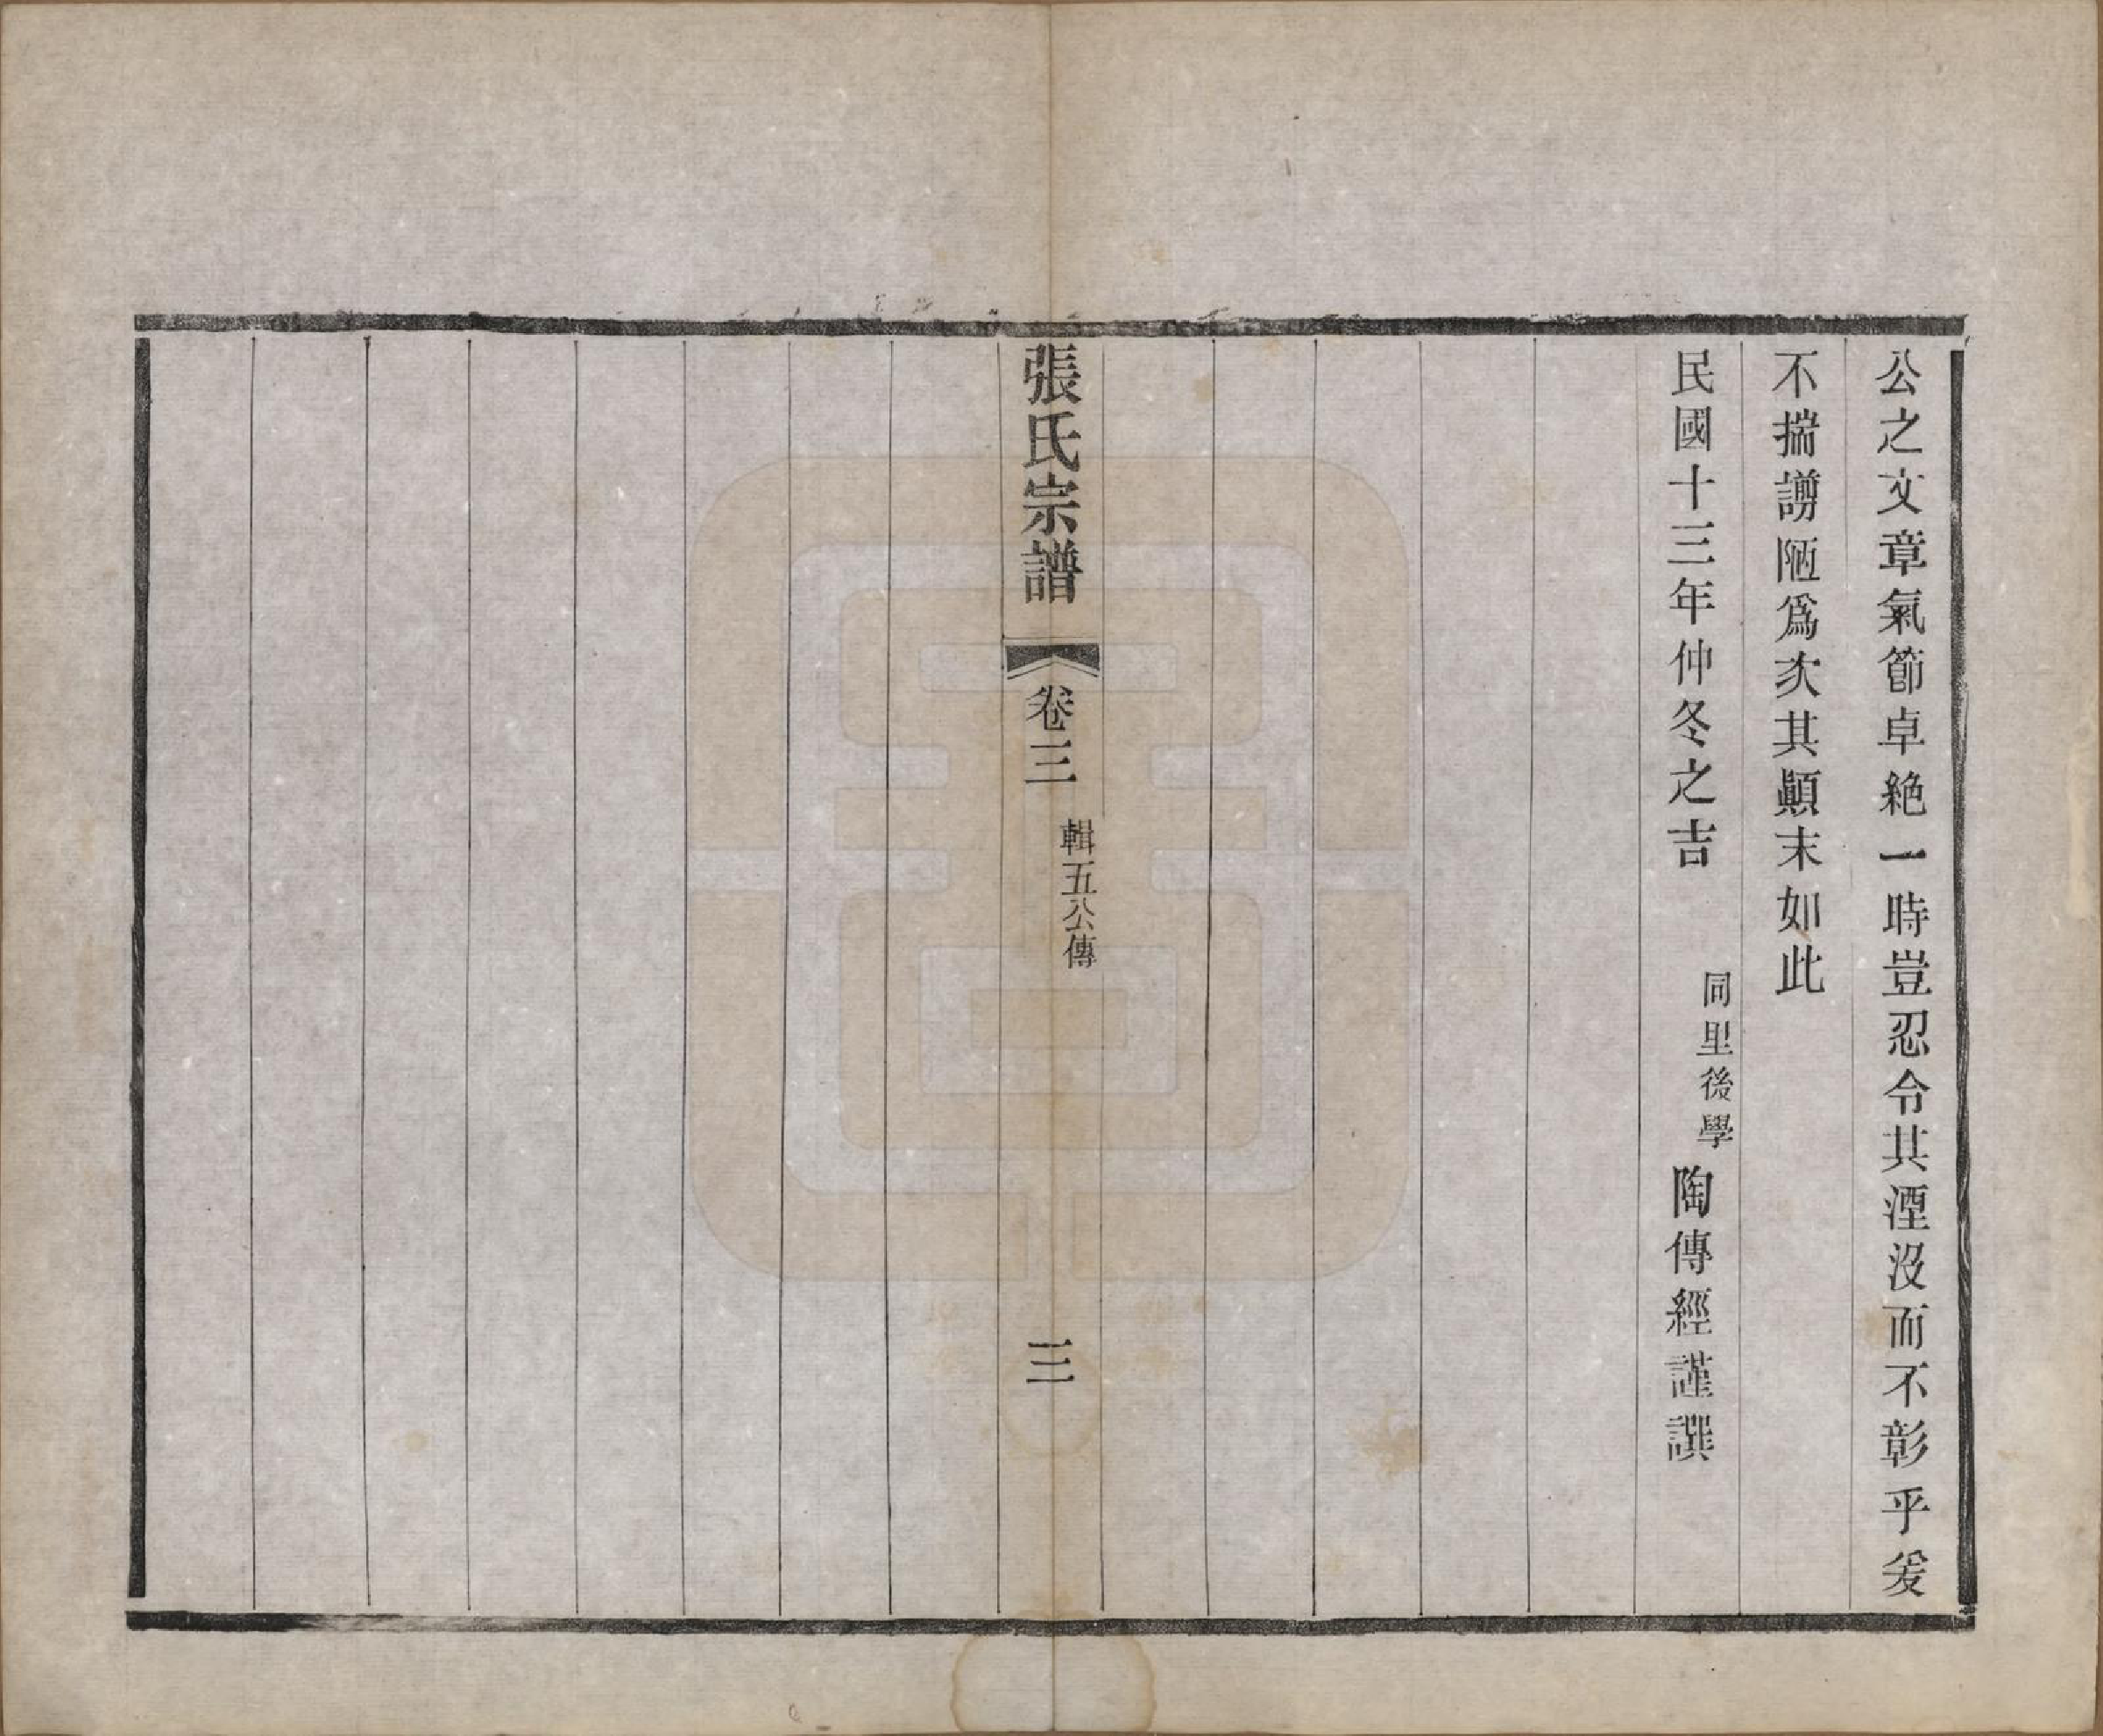 公之文章氣節卓絶一時豈忍令其湮沒而不彰乎爰
不揣謭陋爲次其顚末如此
民國十三年仲冬之吉 同里後學陶傳經謹譔
張氏宗譜 卷三 輯五公傳 三